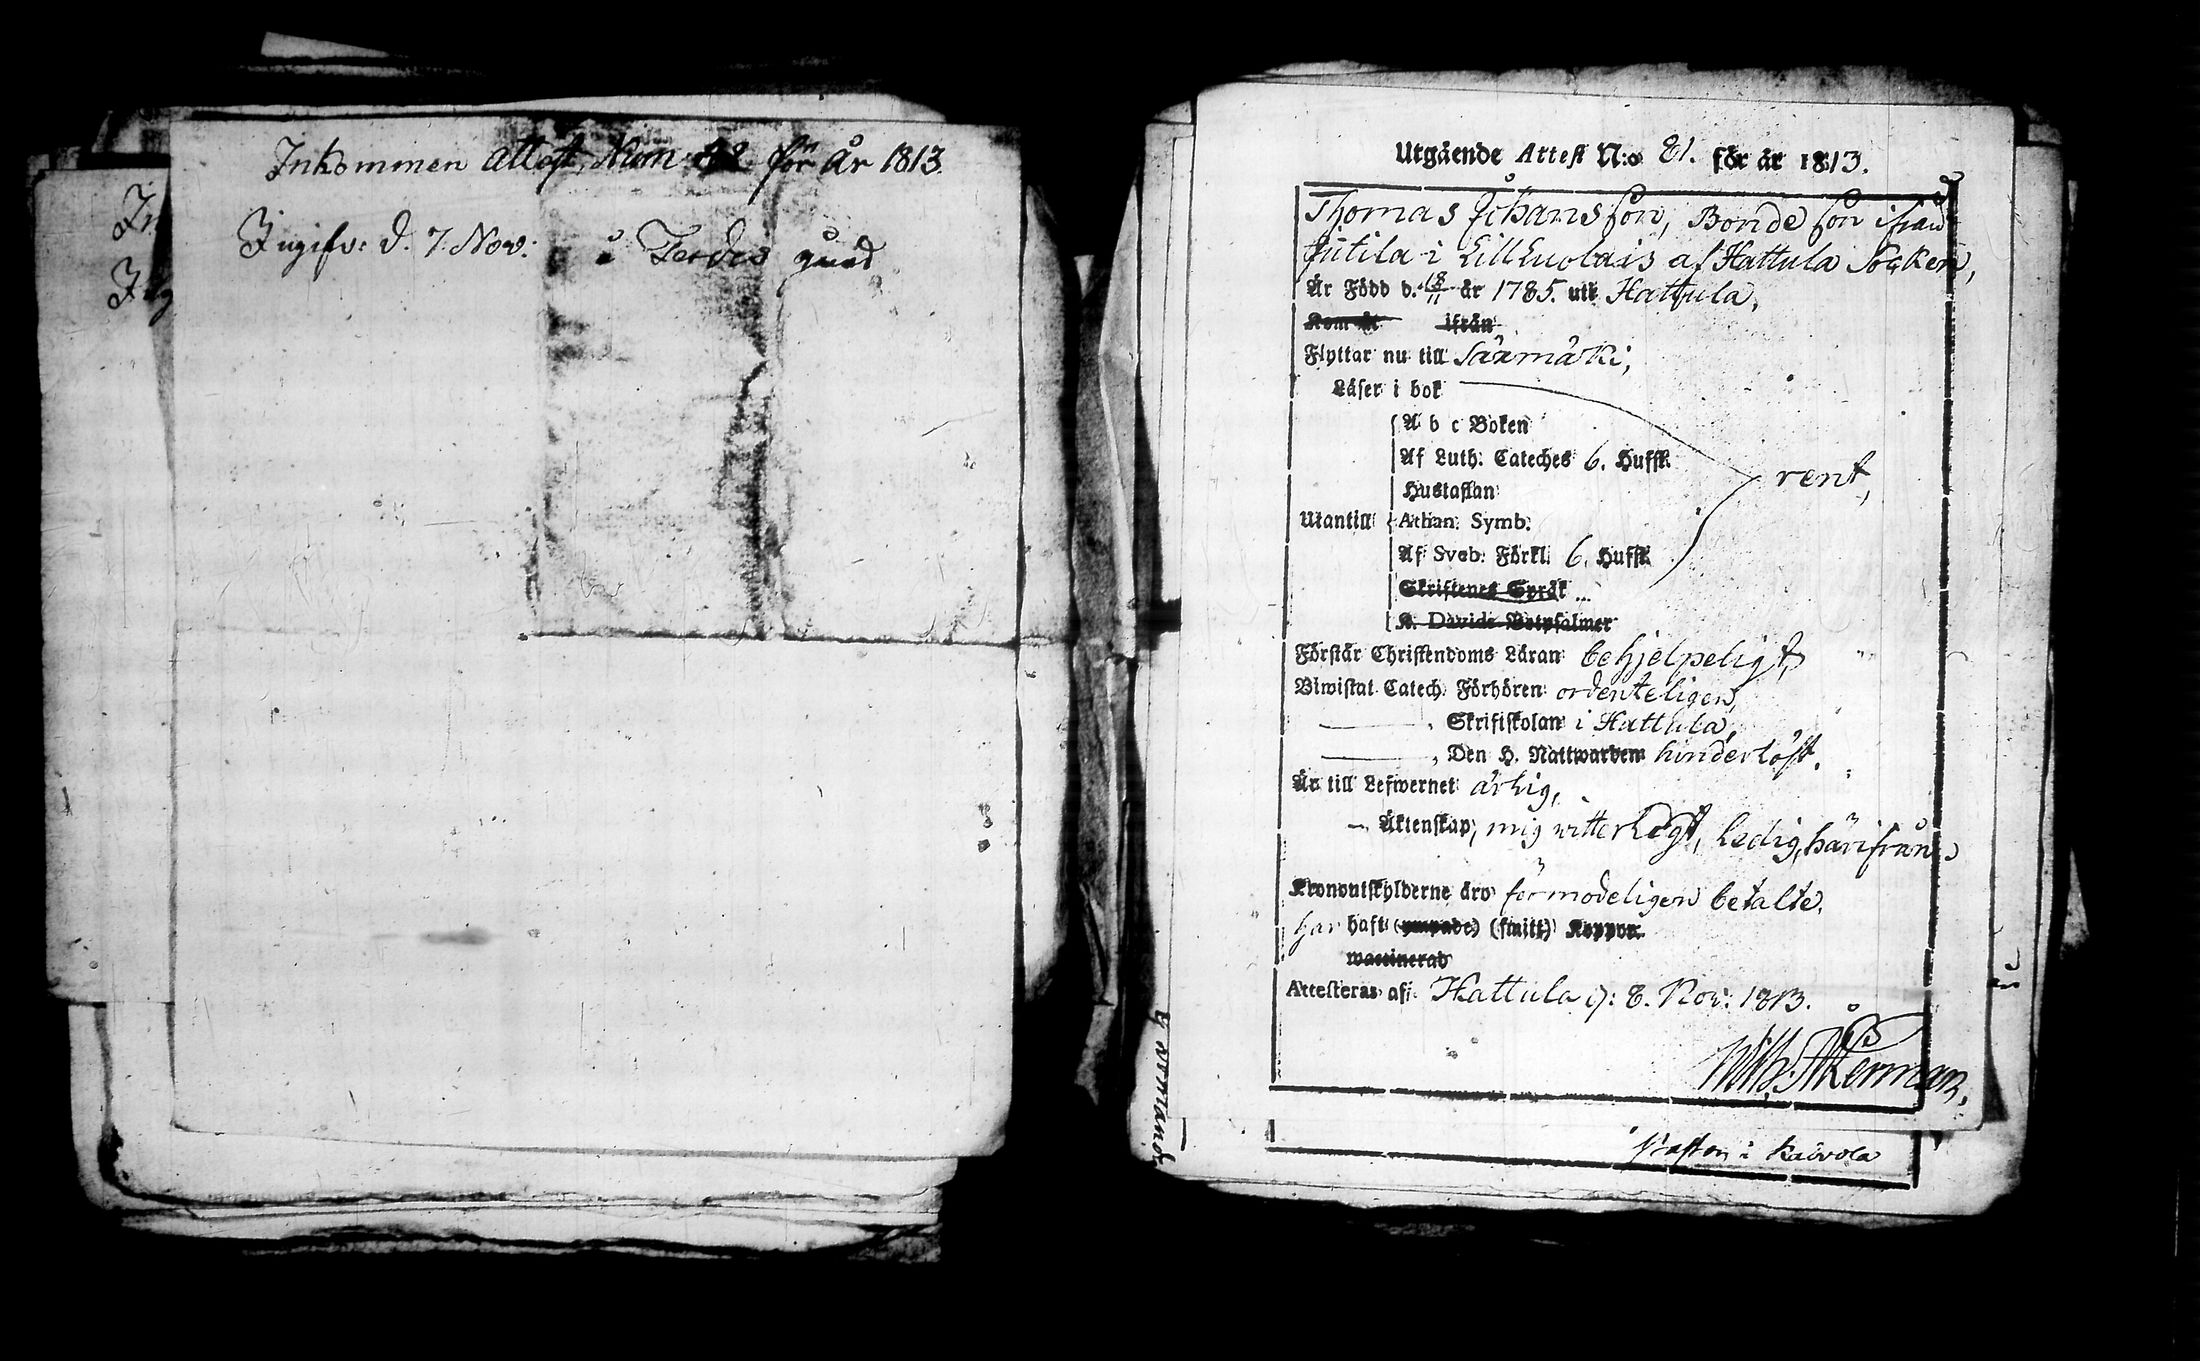 Inkommen Attest, Num: för År 1813.
Ingifv: d. 7. Nov:
Utgående Attest N:o 81. för år 1813.
Thomas Johansson, Bonde son ifrån
Jutila i Lill Luolais af Hattula Socken,
År Född d. 18/11 år 1785. uti Hattula.
Kom år ifrån
Flyttar nu till Sääxmäki,
Läser i bok
A b c Boken
Af Luth: Cateches 6. Huffst. rent,
Hustaflan
Utantill Athan: Symb:
Af Sveb: Förkl. 6. Huffst.
Skriftenes Språk ...
K. Davids Botpsalmer
Förstår Christendoms Läran behjelpeligt,
Biwistat Catech. Förhören ordenteligen,
Skriftskolan i Hattula,
Den H. Nattwarden hinderlöst.
Är till Lefwernet ärlig,
Äktenskap, mig witterligt, ledig, härifrån
Kronoutskylderne äro förmodeligen betalte.
har haft (ympade) (smitt) Koppor.
waccinerad
Attesteras af: Hattula d: 8. Nov: 1813.
Wilh: Åkerman,
i